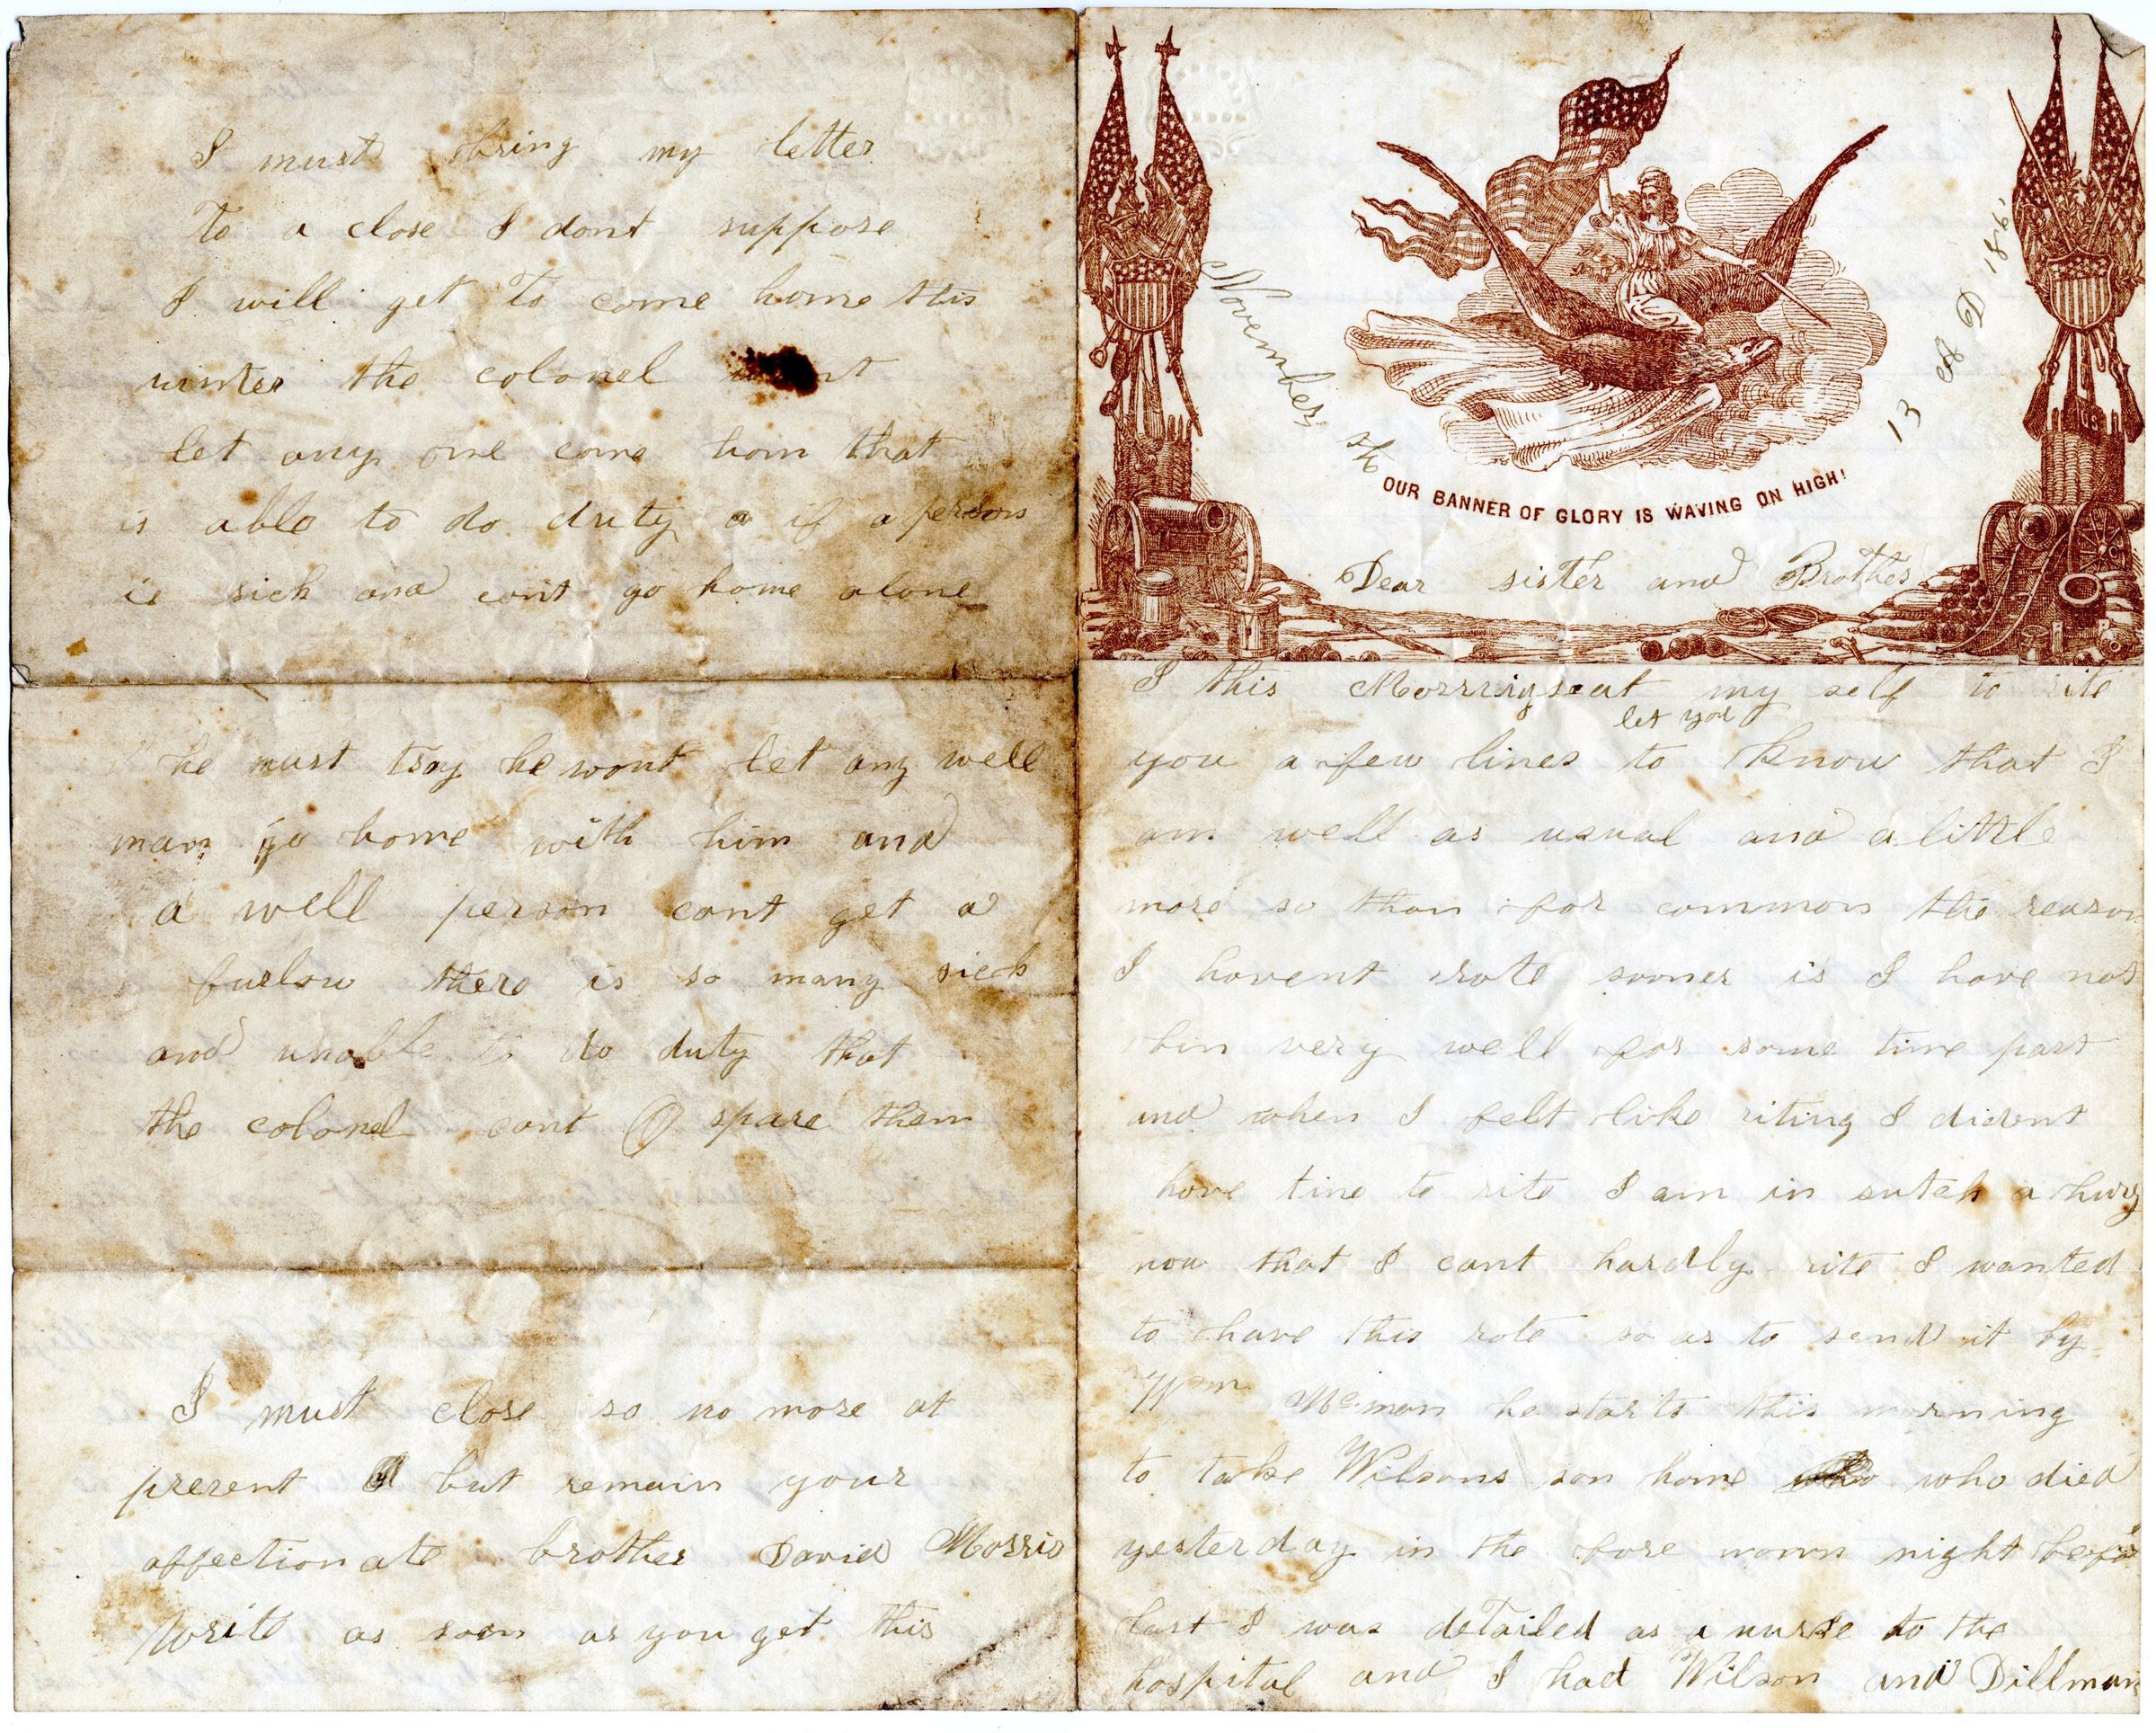 November the 13 A D 186
OUR BANNER OF GLORY IS WAVING ON HIGH!
Dear sister and Brother
I this Morning seat my self to rite
let you
you a few lines to know that I
am well as usual and a little
more so than for common the reason
I havent rote sooner is I have not
bin very well for some time past
and when I felt like riting I dident
have time to rite I am in sutch a hury
now that I cant hardly rite I wanted
to have this rote so as to send it by
Wm he starts this morning
to take Wilsons son home who died
yesterday in the fore noon night before
last I was detailed as a nurse to the
hospital and I had Wilson and Dillman
I must bring my letter
To a close I dont suppose
I will get To come home this
winter the colonel wont
let any one come hom that
is able to do duty a if a person
is sick and cant go home alone
he must he wont let any well
man go home with him and
a well person cant get a
furlow there is so many sick
and unable to do duty that
the colonel cant spare them
I must close so no more at
present but remain your
affectionate brother David Morris
Write as soon as you get this